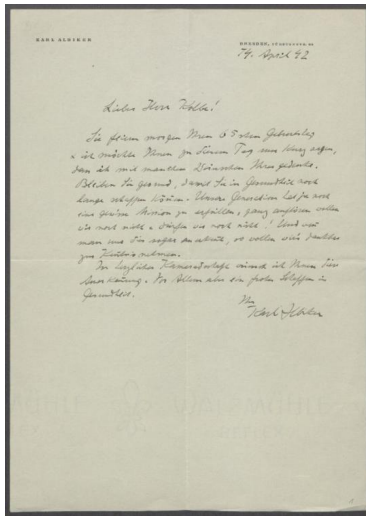 KARL ALBIKER
DRESDEN,
14. April 42
Lieber Herr Kolbe!
Sie feiern morgen Ihren 65sten Geburtstag
u. ich möchte Ihnen zu diesem Tag nur kurz sagen,
dass ich mit manchen Wünschen Ihrer gedenke.
Bleiben Sie gesund, damit Sie in Gesundheit noch
lange schaffen können. Unsere Generation hat ja noch
eine gewisse Mission zu erfüllen, ganz
wir noch nicht u. dürfen wir noch nicht! Und was
man uns
zur Kenntnis nehmen.
In herzlicher Kameradschaft wünsch ich Ihnen
Vor Allem aber ein frohes Schaffen in
Gesundheit.
Ihr
Karl Albiker